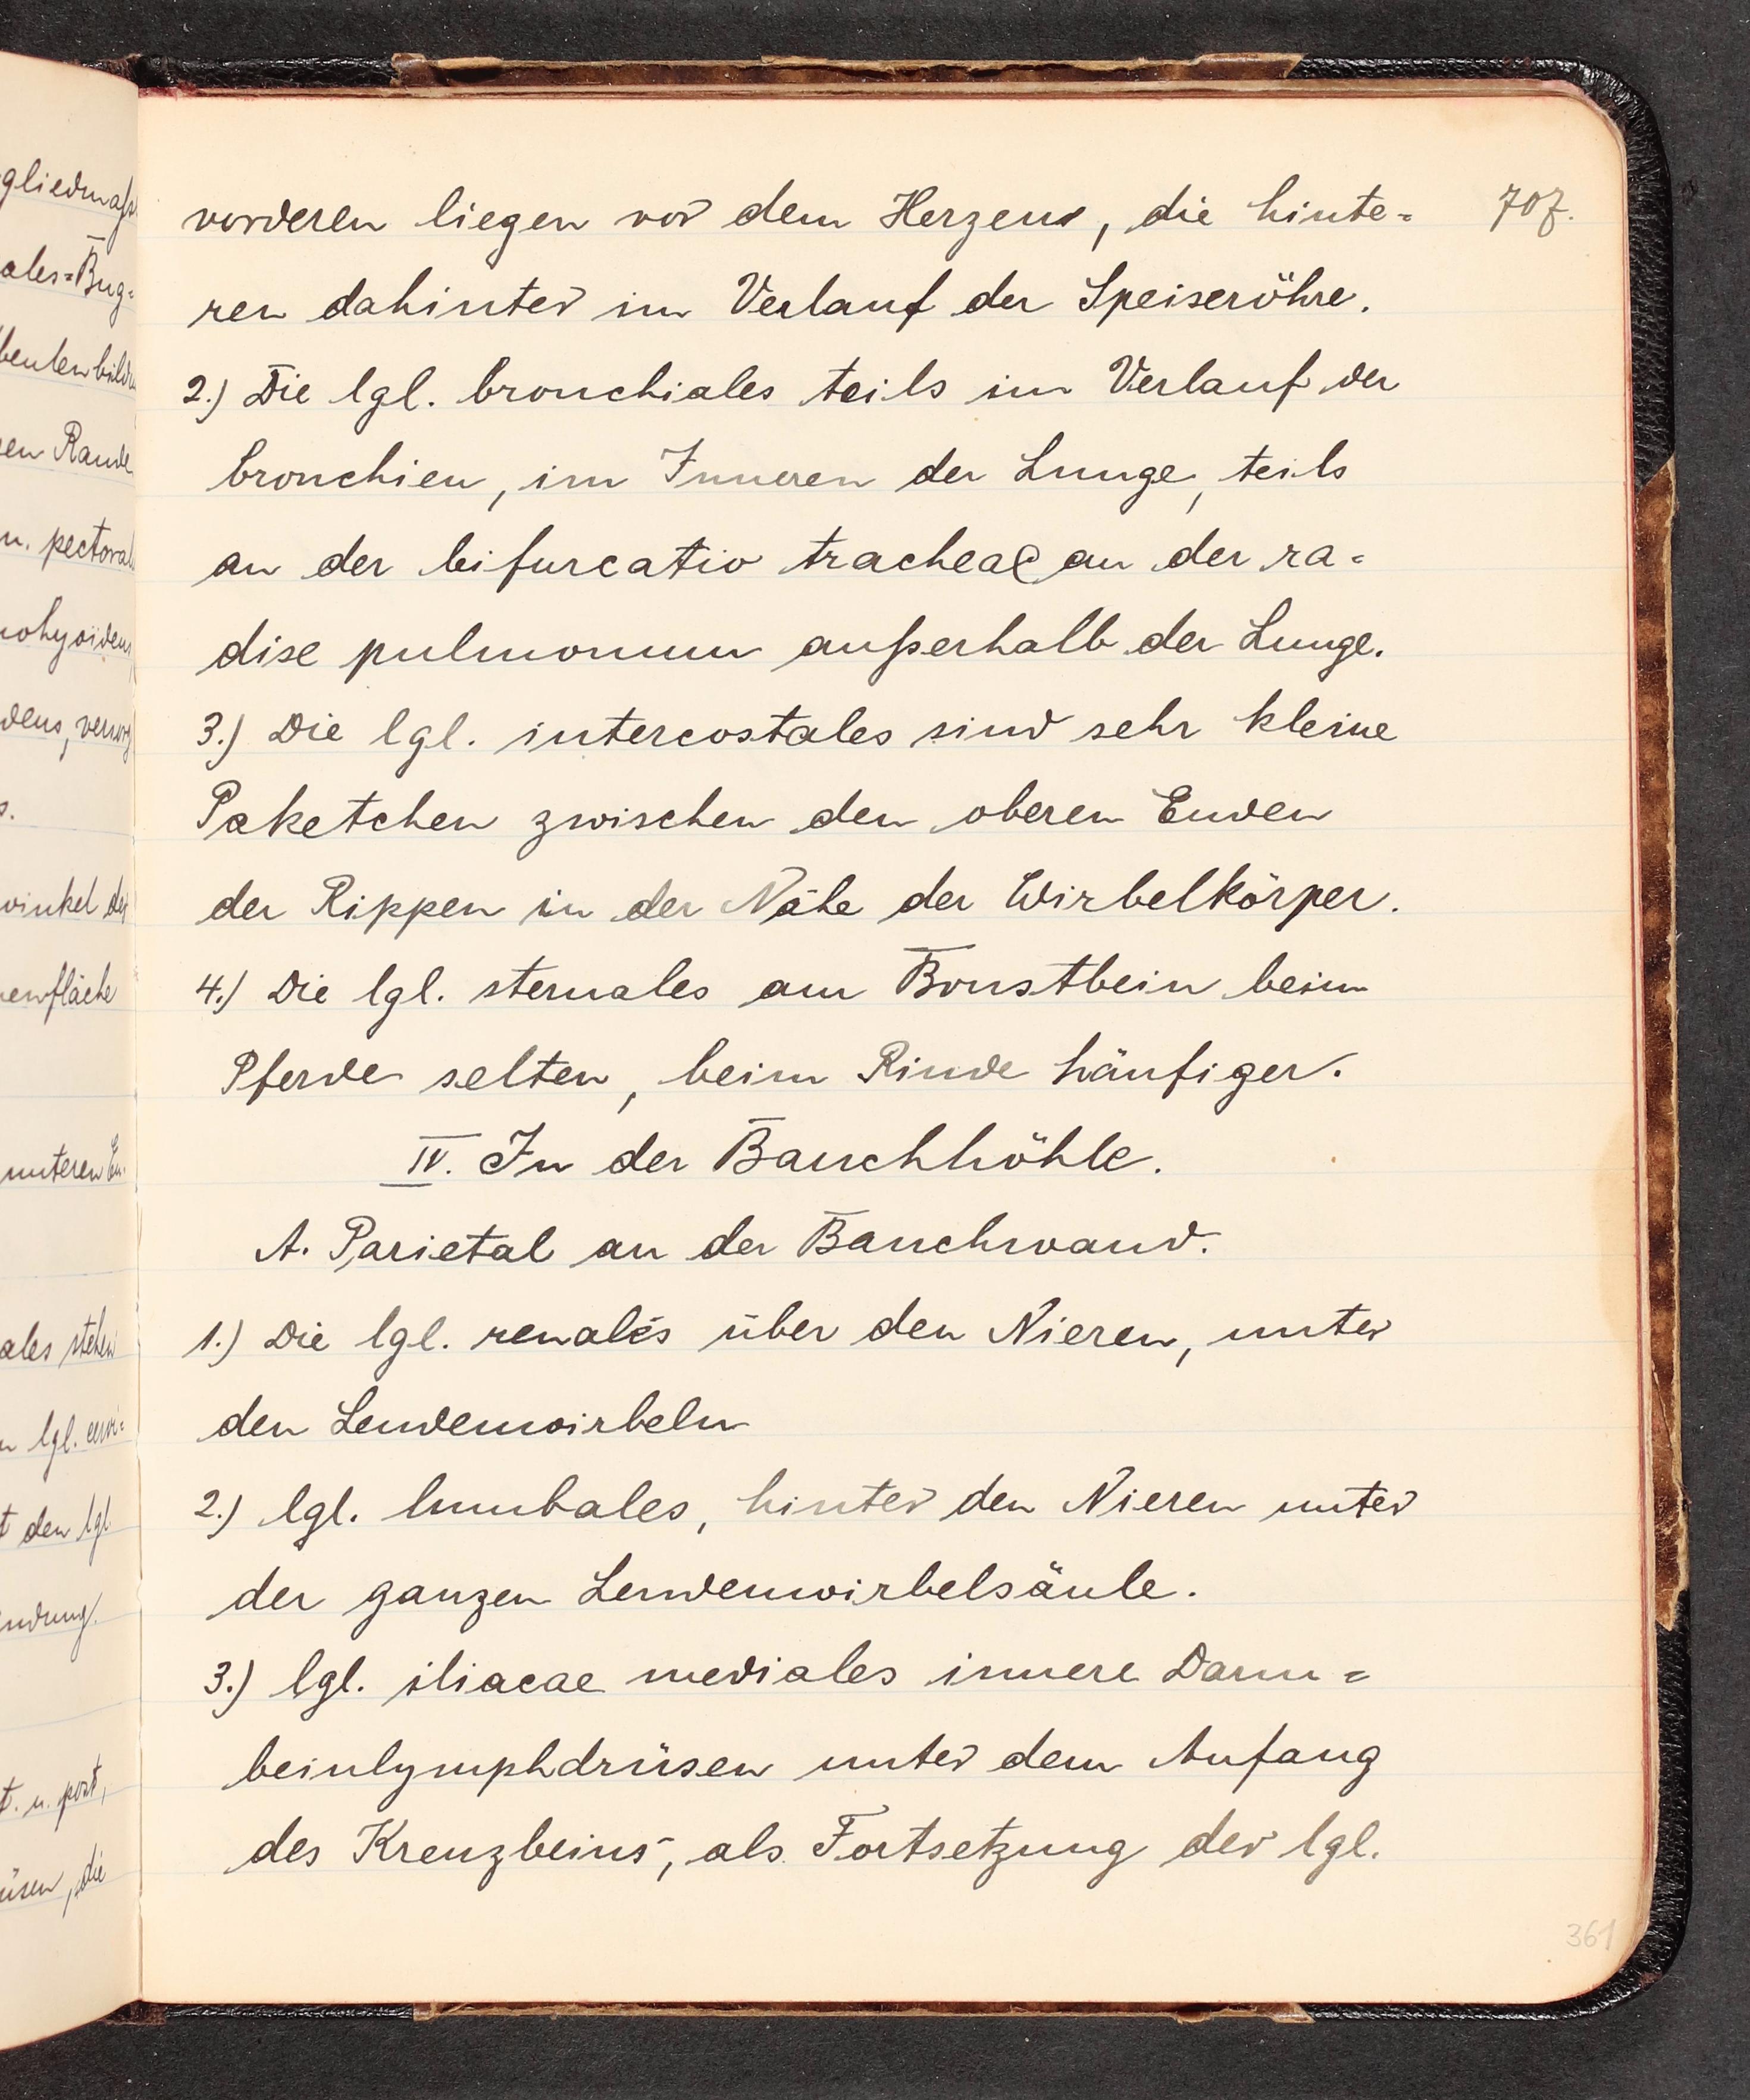 vorderen liegen vor dem Herzen, die hinte=
707.
ren dahinter im Verlauf der Speiseröhre.
2.) Die lgl. bronchiales teils im Verlauf der
bronchien, im Inneren der Lunge, teils
an der bifurcatio tracheae an der ra=
dise pulmonum außerhalb der Lunge.
3.) Die lgl. intercostales sind sehr kleine
Paketchen zwischen den oberen Enden
der Rippen in der Nähe der Wirbelkörper.
4.) Die lgl. sternales am Brustbein beim
Pferde selten, beim Rinde häufiger.
IV. In der Bauchhöhle.
A. Parietal an der Bauchwand.
1.) Die lgl. renales über den Nieren, unter
den Lendenwirbeln
2.) lgl. lumbales, hinter den Nieren unter
der ganzen Lendenwirbelsäule.
3.) lgl. iliacae mediales innere Darm=
beinlymphdrüsen unter dem Anfang
des Kreuzbeins, als Fortsetzung der lgl.
361